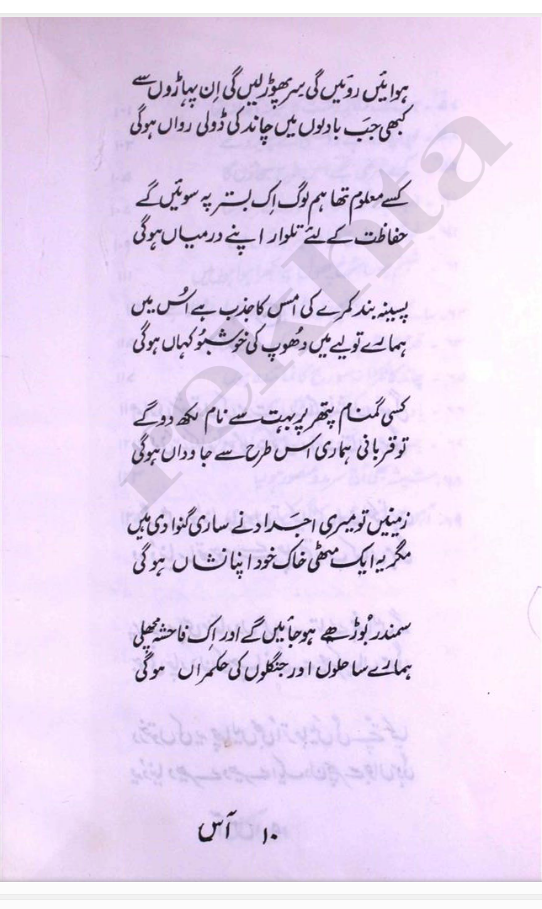 ہوائیں روئیں گی سر پھوڑ لیں گی ان پہاڑوں سے
کبھی جب بادلوں میں چاند کی ڈولی رواں ہوگی
کسے معلوم تھا ہم لوگ اک بستر پہ سوئیں گے
حفاظت کے لئے تلوار اپنے درمیاں ہوگی
پسینہ بند کمرے کی امس کا جذب ہے اُس میں
ہمارے تولیے میں دھوپ کی خوشبو کہاں ہوگی
کسی گمنام پتھر پر بہت سے نام لکھ دوگے
تو قربانی ہماری اس طرح سے جاوداں ہوگی
زمینیں تو میری اجداد نے ساری گنوا دی ہیں
مگر یہ ایک مٹھی خاک خود اپنا نشاں ہوگی
سمندر بوڑھے ہو جائیں گے اور اک فاحشہ مچھلی
ہمارے ساحلوں اور جنگلوں کی حکمراں ہوگی
۱۰ آس
rekhta